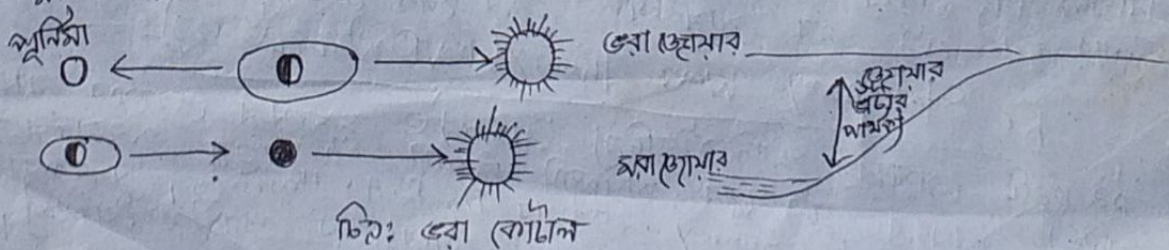 পূর্নিমা
ভরা জোয়ার
জোয়ার
ভাটার
পার্থক্য
মরা জোয়ার
চিত্র: ভরা কোটাল